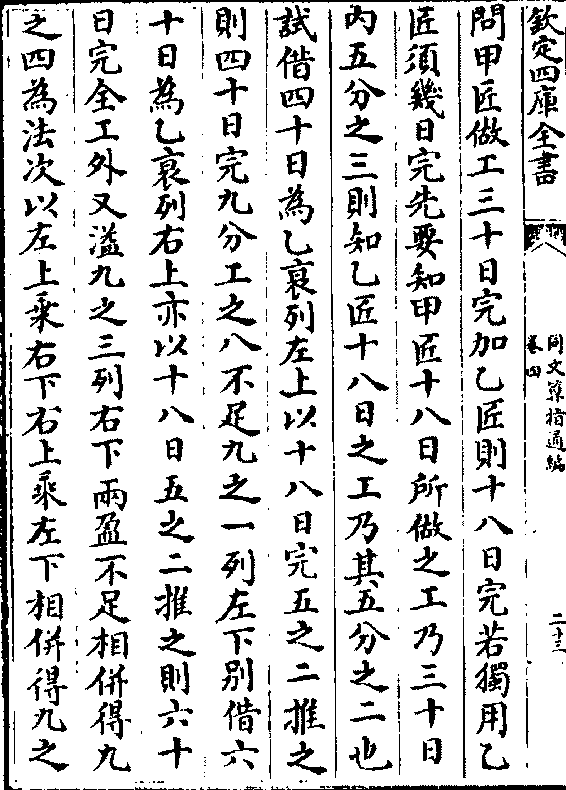 欽定四庫全書
同文算指通編
卷四
二十三
問甲匠做工三十日完加乙匠則十八日完若獨用乙
匠須幾日完先要知甲匠十八日所做之工乃三十日
內五分之三則知乙匠十八日之工乃其五分之二也
試借四十日為乙衰列左上以十八日完五之二推之
則四十日完九分工之八不足九之一列左下別借六
十日為乙衰列右上亦以十八日五之二推之則六十
日完全工外又溢九之三列右下兩盈不足相併得九
之四為法次以左上乘右下右上乘左下相併得九之